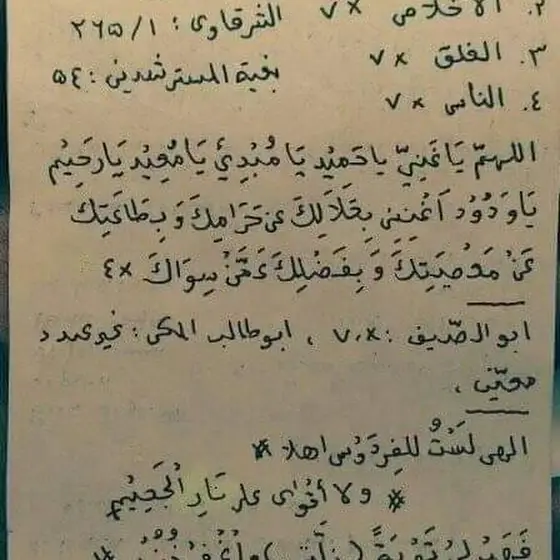 ٢. الاخلاص ×٧ الشرقاوى : ٢٦٥/١
٣. الفلق ×٧ بغية المسترشدين : ٥٤
٤. الناس ×٧
اللهمّ يَا غَنِيّ يا حَمِيْد يَا مُبْدِئ يَا مُعِيْد يَا رَحِيْم
يَا وَدُوْد اَغْنِنِى بِحَلَالِكَ عن حَرَامِكَ وَ بِطَاعَتِكَ
عَنْ مَعْصِيَتِكَ وَ بِفَضْلِكَ عَمَّنْ سِوَاكَ ×٤
ابو الصّيف : ×٧٠ ، ابو طالب المكى : غير عدد
معيّن .
الهى لَسْتُ لِلفِرْدَوْسِ اهلا *
* ولا أقْوٰى على نَارِ الْجَحِيْمِ
فَهَبْ لِىْ تَوْبَةً وَاغْفِرْ ذُنُوْبِىْ